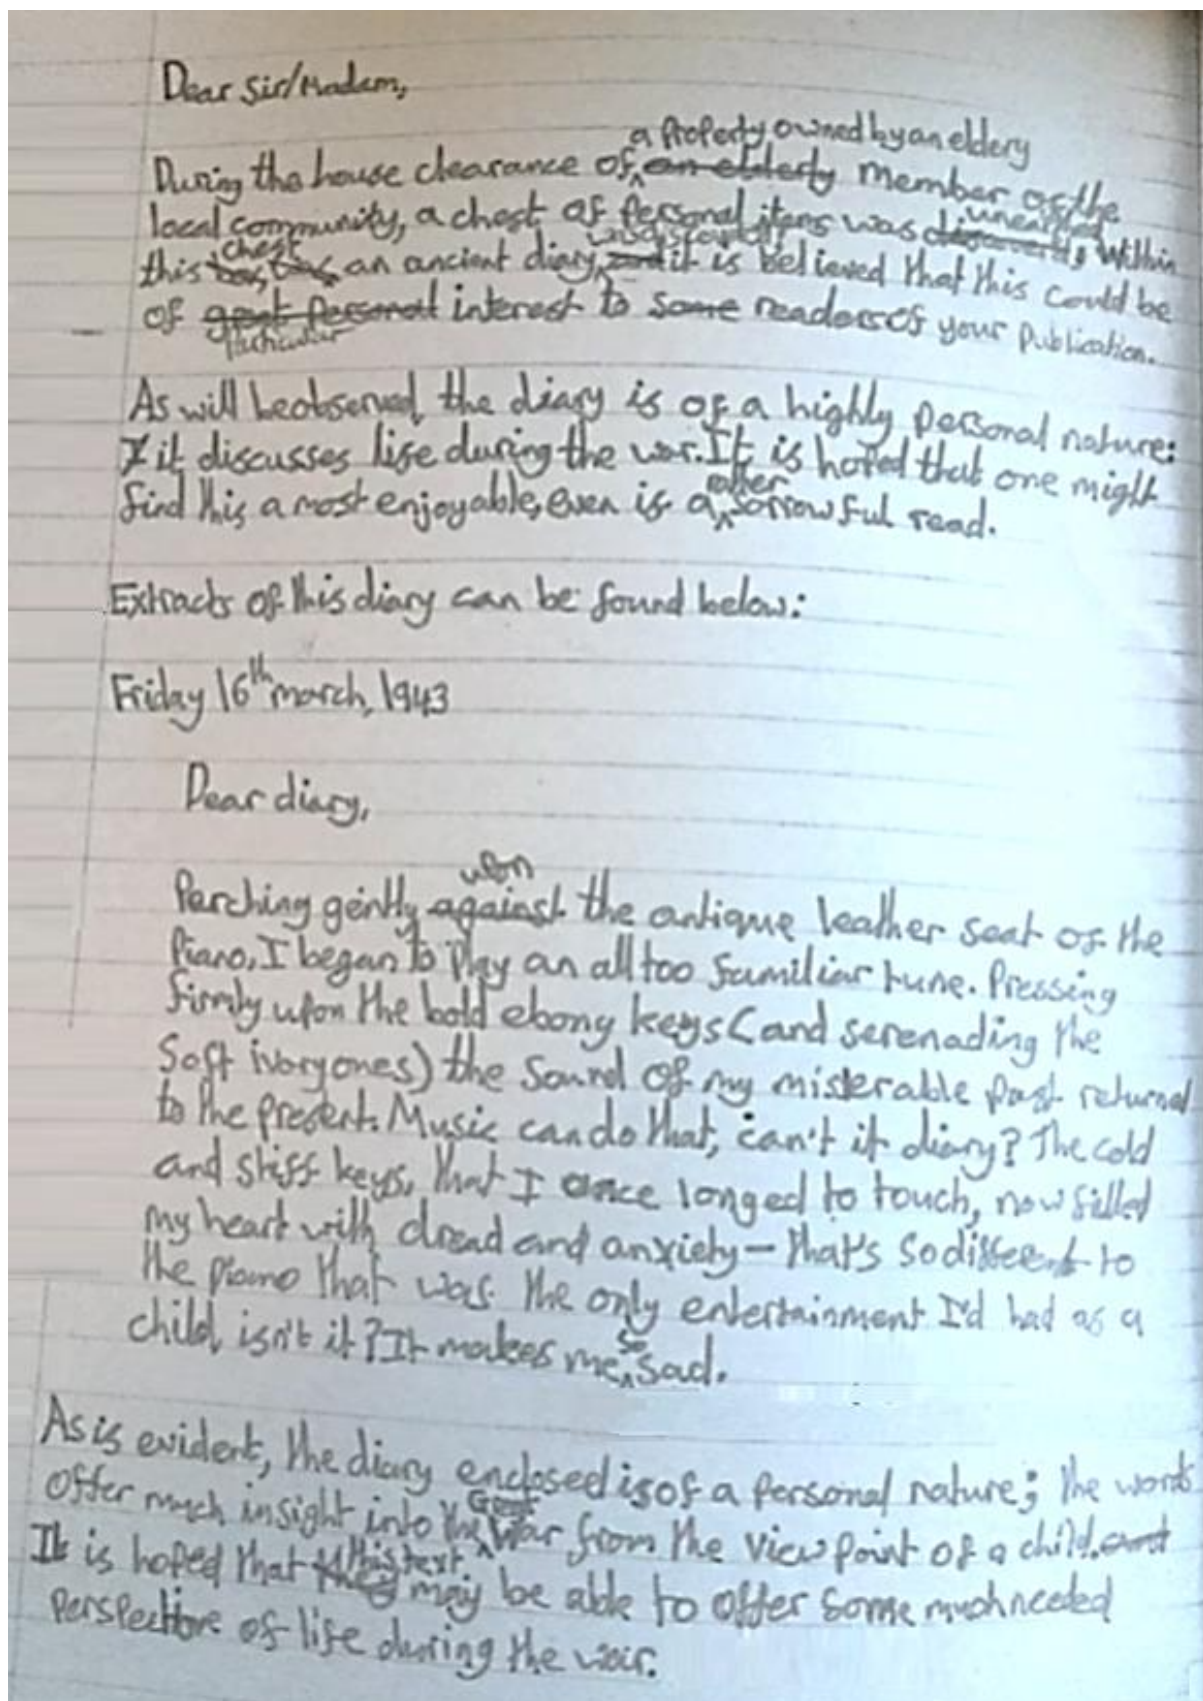 Dear Sir/Madam,
a Property owned by an eldery
During the house clearance of an elderly member of the
local community, a chest of personal items was unearthed. Within
this chest an ancient diary was discovered; it is believed that this could be
of great personal interest to some readers of your publication.
particular
As will be observed, the diary is of a highly personal nature:
it discusses life during the war. It is hoped that one might
rather
find this a most enjoyable, even if a sorrowful read.
Extracts of this diary can be found below:
Friday 16th march, 1943
Dear diary,
upon
Perching gently against the antique leather seat of the
Piano, I began to play an all too familiar tune. Pressing
firmly upon the bold ebony keys (and serenading the
soft ivory ones) the sound of my miserable past returned
to the present. Music can do that, can't it diary? The cold
and stiff keys, that I once longed to touch, now filled
my heart with dread and anxiety – that's so different to
the piano that was the only entertainment I'd had as a
so
child, isn't it? It makes me sad.
As is evident, the diary enclosed is of a personal nature; the words
Great
offer much insight into the War from the viewpoint of a child. and
this text
It is hoped that they may be able to offer some much needed
perspective of life during the war.